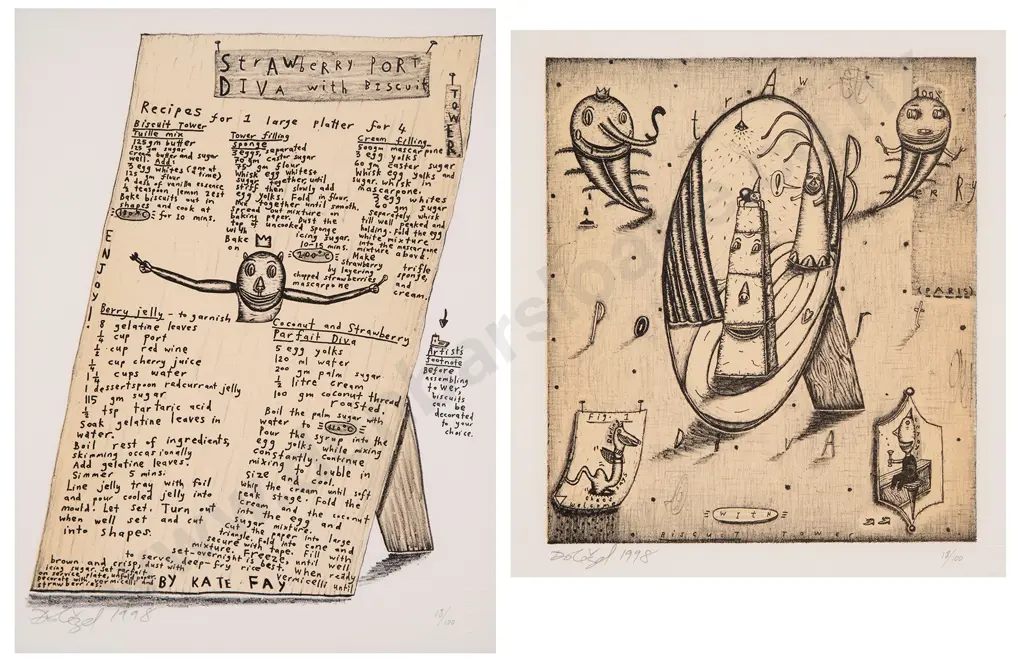 StrAWbeRRy PORT
DIVA with Biscuit
TOWER
Recipes for 1 large platter for 4
Biscuit Tower
Tuille mix
125gm butter
125 gm sugar
cream butter and sugar
well. Add:
3 egg whites (one at
a time)
125 gm flour
a dash of vanilla essence
½ teaspoon lemon zest
Bake biscuits out in
shapes and cook at
180°C for 10 mins.
Tower filling
sponge
3 eggs, separated
gm caster sugar
gm flour
Whisk egg whites
together, until
stiff then slowly add
egg yolks. Fold in flour.
Mix together until smooth.
Spread out mixture on
baking paper. Dust the
top of uncooked sponge
with icing sugar.
Bake 10-15 mins.
on 200°C
Cream filling
500gm mascarpone
3 egg yolks
60 gm caster sugar
Whisk egg yolks and
sugar, whisk in
mascarpone.
3 egg whites
60 gm sugar
Separately whisk
till well peaked and
holding. Fold the egg
white mixture
into the mascarpone
mixture above.
Make
strawberry trifle
by layering sponge,
chopped strawberries and
mascarpone cream.
ENJOY!
Berry jelly - to garnish
8 gelatine leaves
¼ cup port
½ cup red wine
¼ cup cherry juice
1¼ cups water
1 dessertspoon redcurrant jelly
115 gm sugar
½ tsp tartaric acid
Soak gelatine leaves in
water.
Boil rest of ingredients,
skimming occarionally
Add gelatine leaves.
Simmer 5 mins.
Line jelly tray with foil
and pour cooled jelly into
mould. Let set. Turn out
when well set and cut
into shapes.
Coconut and Strawberry
Parfait Diva
5 egg yolks
120 ml water
200 gm palm sugar
½ litre cream
100 gm coconut thread
roasted.
Boil the palm sugar with
water to
Pour the syrup into the
egg yolks while mixing
constantly. Continue
mixing to double in
size and cool.
Whip the cream until soft
peak stage. Fold the
cream and the coconut
into the egg and
sugar mixture.
Cut the paper into large
triangle, fold into cone and
secure with tape. Fill with
mixture. Freeze, until well
set-overnight is best. When ready
to serve, deep-fry rice vermicelli until
brown and crisp, dust with
icing sugar. Set parfait
on service plate, unfold paper
decorate with vermicelli and
strawberry.
BY KATE FAY
Artists
footnote
Before
assembling
tower,
biscuits
can be
decorated
to your
choice.
1998
/100
t r A w
100%
e R Ry
(PARIS)
r
D i v A
Fig. 1
welcome
WITH
Biscuit Tower
1998
/100